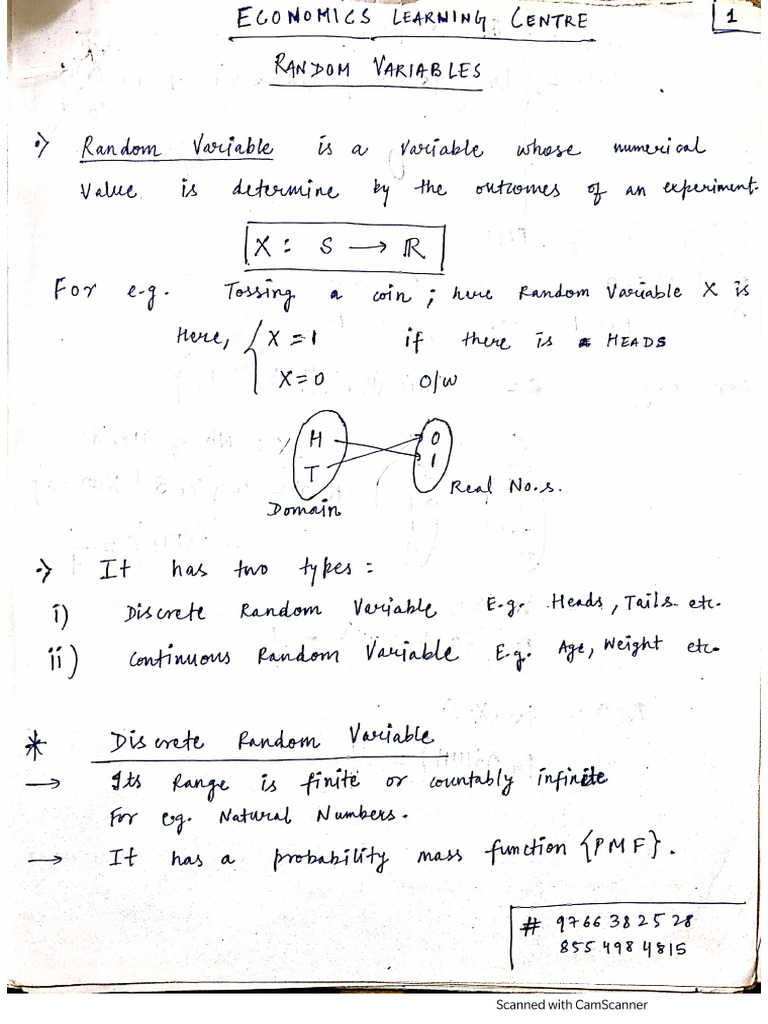 ECONOMICS LEARNING CENTRE
1
RANDOM VARIABLES
Random Variable is a variable whose numerical
value is determine by the outcomes of an experiment.
X : S → ℝ
For e.g. Tossing a coin ; here Random Variable X is
Here, { X = 1 if there is a HEADS
X = 0 o/w
H 0
T 1
Real No.s.
Domain
→ It has two types :
i) Discrete Random Variable E.g. Heads, Tails etc.
ii) Continuous Random Variable E.g. Age, Weight etc.
* Discrete Random Variable
→ Its Range is finite or countably infinite
For e.g. Natural Numbers.
→ It has a probability mass function {PMF}.
# 9766 38 25 28
855 498 4815
Scanned with CamScanner